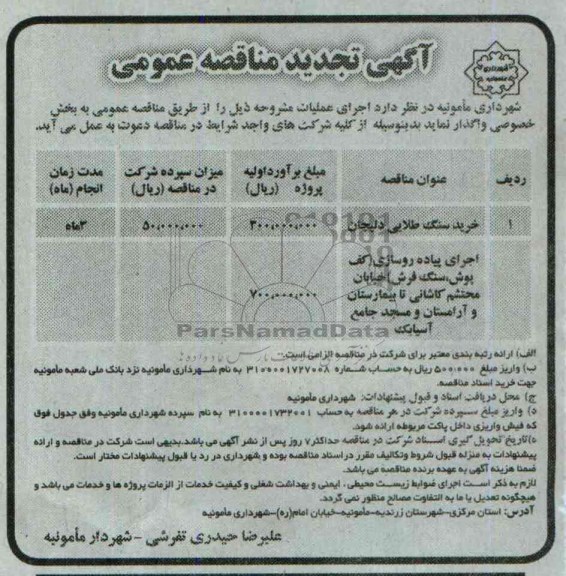 آگهی تجدید مناقصه عمومی
شهرداری مأمونیه در نظر دارد اجرای عملیات مشروحه ذیل را از طریق مناقصه عمومی به بخش
خصوصی واگذار نماید بدینوسیله از کلیه شرکت های واجد شرایط در مناقصه دعوت به عمل می آید.
ردیف عنوان مناقصه مبلغ برآورد اولیه پروژه (ریال) میزان سپرده شرکت در مناقصه (ریال) مدت زمان انجام (ماه)
۱ خرید سنگ طلایی دلیجان ۳۰۰،۰۰۰،۰۰۰ ۵۰،۰۰۰،۰۰۰ ۳ماه
اجرای پیاده روسازی(کف
پوش،سنگ فرش)خیابان
محتشم کاشانی تا بیمارستان ۷۰۰،۰۰۰،۰۰۰
و آرامستان و مسجد جامع
آسیابک
ParsNamadData
الف) ارائه رتبه بندی معتبر برای شرکت در مناقصه الزامی است.
ب) واریز مبلغ ۵۰۰/۰۰۰ ریال به حساب شماره ۳۱۰۹۰۰۱۷۲۷۰۰۸ به نام شهرداری مأمونیه نزد بانک ملی شعبه مأمونیه
جهت خرید اسناد مناقصه.
ج) محل دریافت اسناد و قبول پیشنهادات: شهرداری مأمونیه
د) واریز مبلغ سپرده شرکت در هر مناقصه به حساب ۳۱۰۰۰۰۱۷۳۲۰۰۱ به نام سپرده شهرداری مأمونیه وفق جدول فوق
که فیش واریزی داخل پاکت مربوطه ارائه شود.
ه)تاریخ تحویل گیری اسناد شرکت در مناقصه حداکثر۷ روز پس از نشر آگهی می باشد.بدیهی است شرکت در مناقصه و ارائه
پیشنهادات به منزله قبول شروط وتکالیف مقرر در اسناد مناقصه بوده و شهرداری در رد یا قبول پیشنهادات مختار است.
ضمنا هزینه آگهی به عهده برنده مناقصه می باشد.
لازم به ذکر است اجرای ضوابط زیست محیطی، ایمنی و بهداشت شغلی و کیفیت خدمات از الزمات پروژه ها و خدمات می باشد و
هیچگونه تعدیل یا ما به التفاوت مصالح منظور نمی گردد.
آدرس: استان مرکزی-شهرستان زرندیه-مأمونیه-خیابان امام(ره)-شهرداری مأمونیه
علیرضا حیدری تفرشی -شهردار مأمونیه